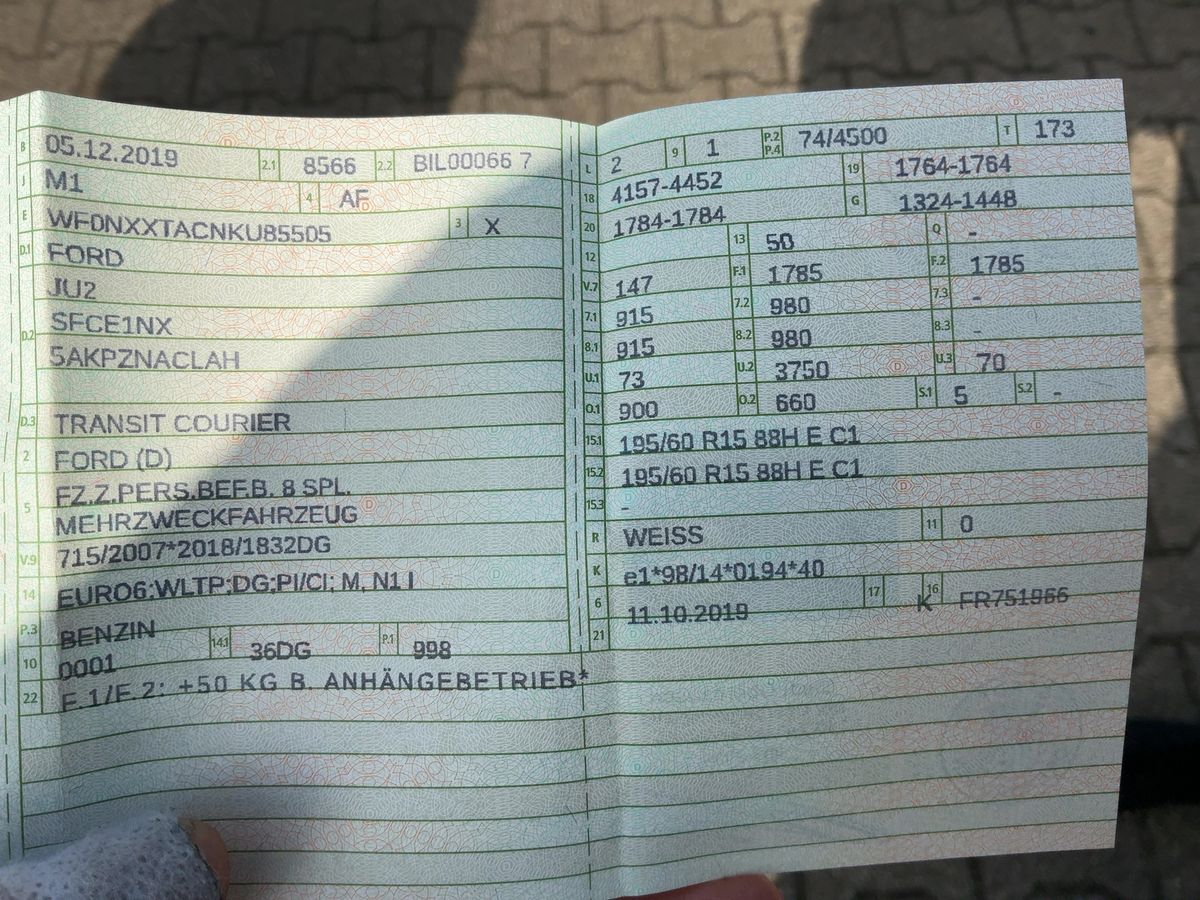 B 05.12.2019 2.1 8566 2.2 BIL00066 7
J M1 4 AF
E WF0NXXTACNKU85505 3 X
D.1 FORD
JU2
D.2 SFCE1NX
5AKPZNACLAH
D.3 TRANSIT COURIER
2 FORD (D)
5 FZ.Z.PERS.BEF.B. 8 SPL.
MEHRZWECKFAHRZEUG
V.9 715/2007*2018/1832DG
14 EURO6;WLTP;DG;PI/CI; M, N1 I
P.3 BENZIN 14.1 36DG P.1 998
10 0001
22 F.1/F.2: +50 KG B. ANHÄNGEBETRIEB*
L 2 9 1 P.2 P.4 74/4500 T 173
18 4157-4452 19 1764-1764
20 1784-1784 G 1324-1448
12 13 50 Q -
V.7 147 F.1 1785 F.2 1785
7.1 915 7.2 980 7.3 -
8.1 915 8.2 980 8.3 -
U.1 73 U.2 3750 U.3 70
O.1 900 O.2 660 S.1 5 S.2 -
15.1 195/60 R15 88H E C1
15.2 195/60 R15 88H E C1
15.3 -
R WEISS 11 0
K e1*98/14*0194*40
6 11.10.2019 17 K 16 FR751966
21